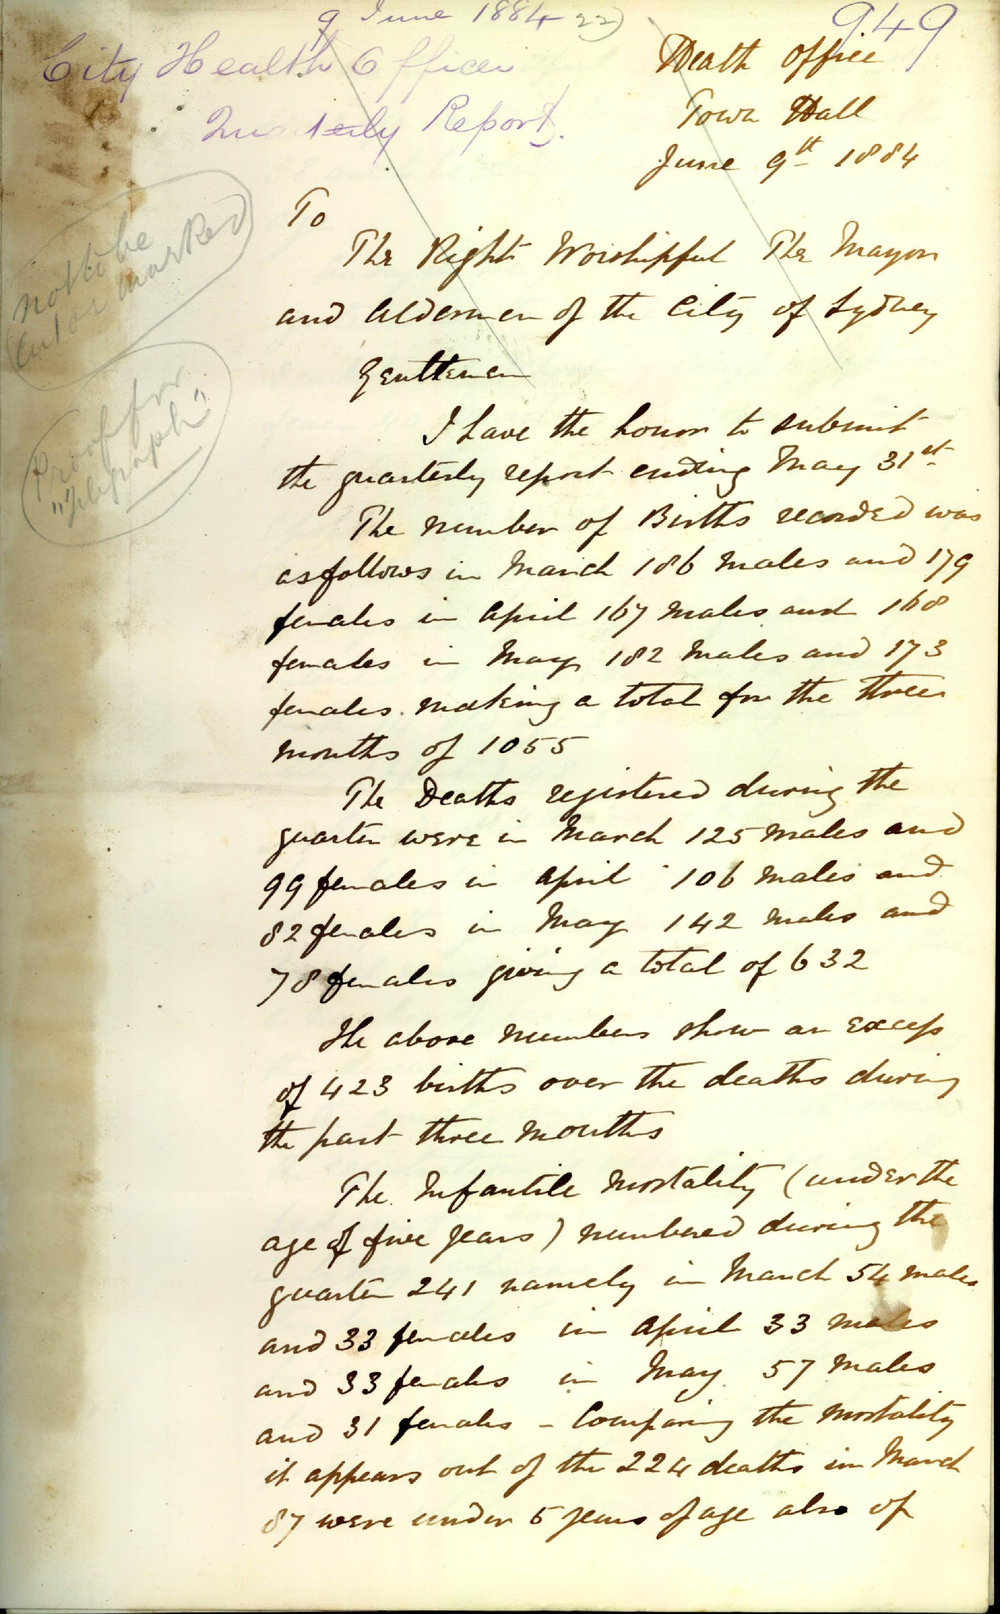 9 June 1884 22)
949
City Health Officer
Quarterly Report.
Death Office
Town Hall
June 9th 1884
not to be
cut or marked
Proof for
"Telegraph"
To
The Right Worshipful The Mayor
and Aldermen of the City of Sydney
Gentlemen
I have the honor to submit
the quarterly report ending May 31st
The number of Births recorded was
as follows in March 186 males and 179
females in April 167 males and 168
females in May 182 males and 173
females making a total for the three
months of 1055
The Deaths registered during the
quarter were in March 125 males and
99 females in April 106 males and
82 females in May 142 males and
78 females giving a total of 632
The above numbers show an excess
of 423 births over the deaths during
the past three months
The Infantile mortality (under the
age of five years) numbered during the
quarter 241 namely in March 54 males
and 33 females in April 33 males
and 33 females in May 57 males
and 31 females – Comparing the mortality
it appears out of the 224 deaths in March
87 were under 5 years of age also of